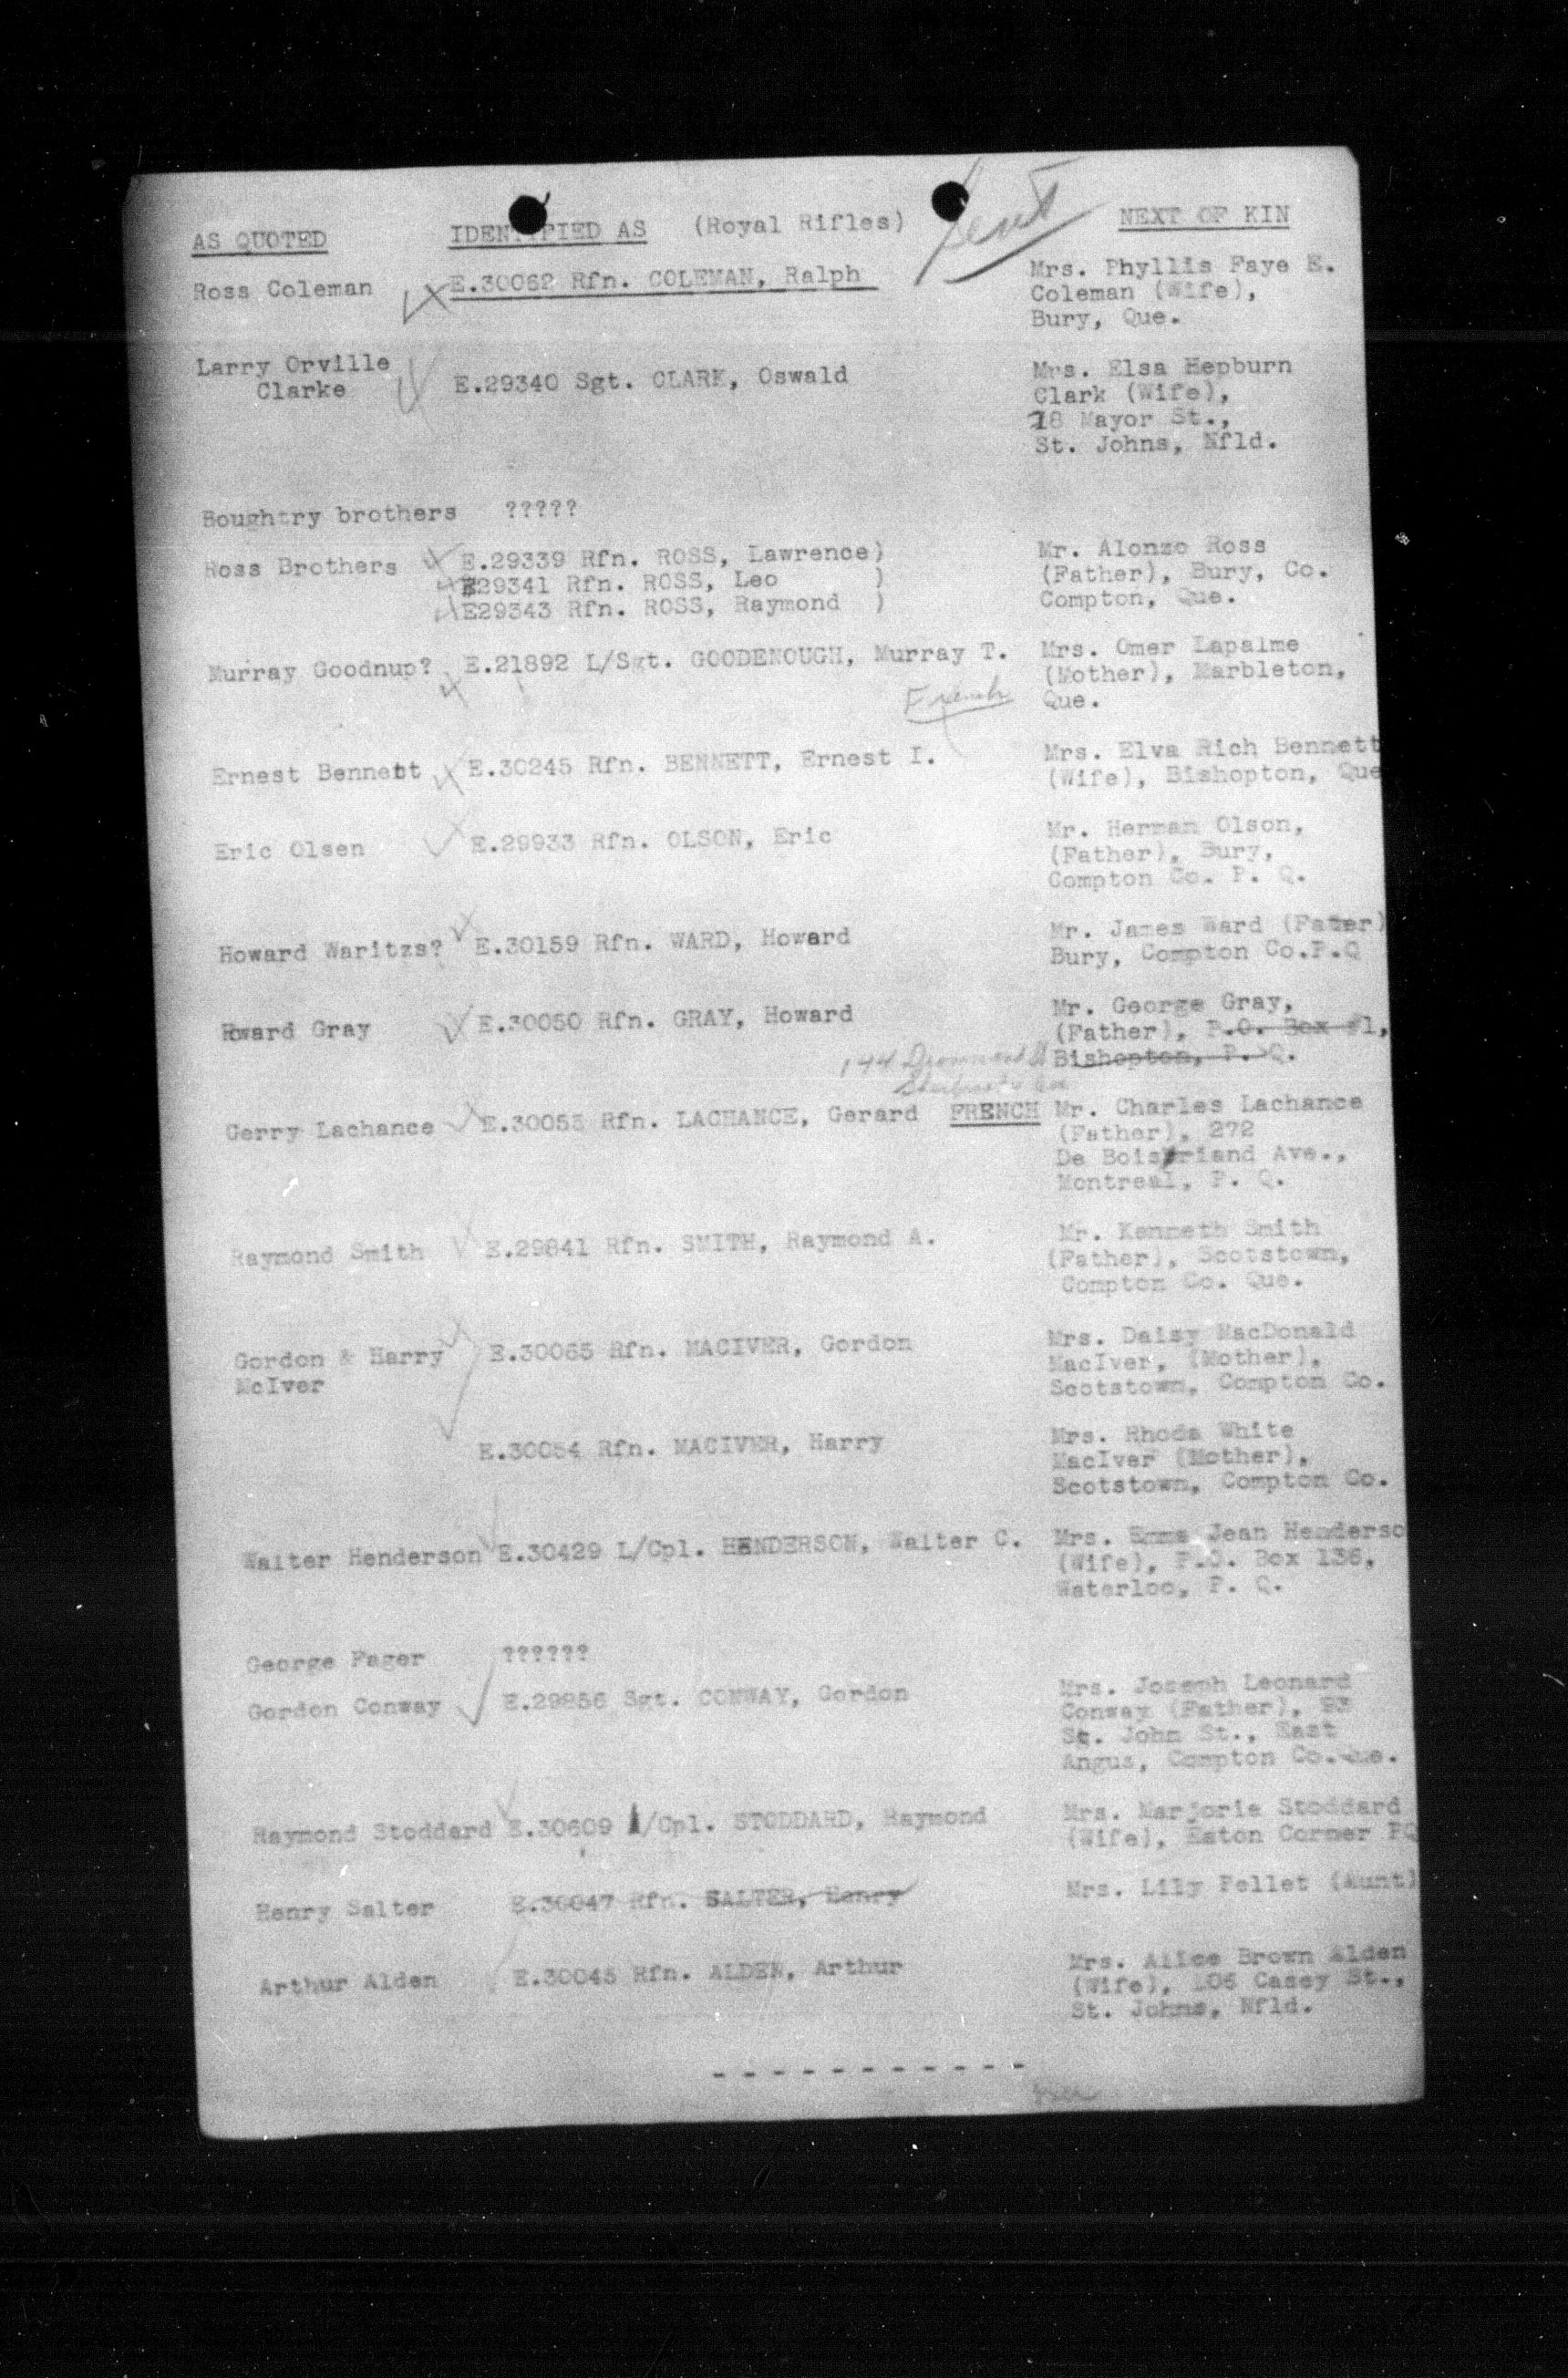 Sent
AS QUOTED IDENTIFIED AS (Royal Rifles) NEXT OF KIN
Ross Coleman E.30062 Rfn. COLEMAN, Ralph Mrs. Phyllis Faye E.
Coleman (Wife),
Bury, Que.
Larry Orville
Clarke E.29340 Sgt. CLARK, Oswald Mrs. Elsa Hepburn
Clark (Wife),
78 Mayor St.,
St. Johns, Nfld.
Boughtry brothers ?????
Ross Brothers E.29339 Rfn. ROSS, Lawrence) Mr. Alonzo Ross
E29341 Rfn. ROSS, Leo ) (Father), Bury, Co.
E29343 Rfn. ROSS, Raymond ) Compton, Que.
Murray Goodnup? E.21892 L/Sgt. GOODENOUGH, Murray T. Mrs. Omer Lapalme
(Mother), Marbleton,
French Que.
Ernest Bennett E.30245 Rfn. BENNETT, Ernest I. Mrs. Elva Rich Bennett
(Wife), Bishopton, Que
Eric Olsen E.29933 Rfn. OLSON, Eric Mr. Herman Olson,
(Father), Bury,
Compton Co. P. Q.
Howard Waritzs? E.30159 Rfn. WARD, Howard Mr. James Ward (Father)
Bury, Compton Co.P.Q
Howard Gray E.30050 Rfn. GRAY, Howard Mr. George Gray,
(Father), P.O. Box #1,
144 Bishopton, P. Q.
Sherbrooke Que
Gerry Lachance E.30053 Rfn. LACHANCE, Gerard FRENCH Mr. Charles Lachance
(Father), 272
De Boisbriand Ave.,
Montreal, P. Q.
Raymond Smith E.29841 Rfn. SMITH, Raymond A. Mr. Kenneth Smith
(Father), Scotstown,
Compton Co. Que.
Gordon & Harry E.30065 Rfn. MACIVER, Gordon Mrs. Daisy MacDonald
McIver MacIver, (Mother),
Scotstown, Compton Co.
E.30054 Rfn. MACIVER, Harry Mrs. Rhoda White
MacIver (Mother),
Scotstown, Compton Co.
Walter Henderson E.30429 L/Cpl. HENDERSON, Walter C. Mrs. Emma Jean Henderso
(Wife), P.O. Box 136,
Waterloo, P. Q.
George Fager ??????
Gordon Conway E.29856 Sgt. CONWAY, Gordon Mrs. Joseph Leonard
Conway (Father), 93
St. John St., East
Angus, Compton Co.Que.
Raymond Stoddard E.30609 /Cpl. STODDARD, Raymond Mrs. Marjorie Stoddard
(Wife), Eaton Corner PQ
Henry Salter E.30047 Rfn. SALTER, Henry Mrs. Lily Pellet (Aunt)
Arthur Alden E.30045 Rfn. ALDEN, Arthur Mrs. Alice Brown Alden
(Wife), 106 Casey St.,
St. Johns, Nfld.
- - - - - - - - - - -